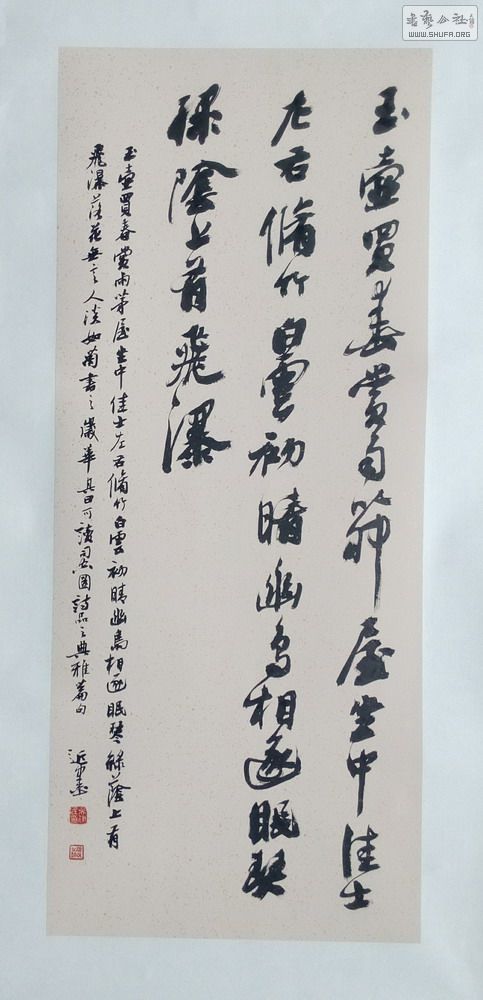 玉壺買春賞雨茆屋坐中佳士
左右脩竹白雲初晴幽鳥相逐眠琴
綠陰上有飛瀑
玉壺買春賞雨茅屋坐中佳士左右脩竹白雲初晴幽鳥相逐眠琴綠蔭上有
飛瀑落花無言人淡如菊書之歲華其曰可讀司空圖詩品之典雅篇句
書藝公社
WWW.SHUFA.ORG